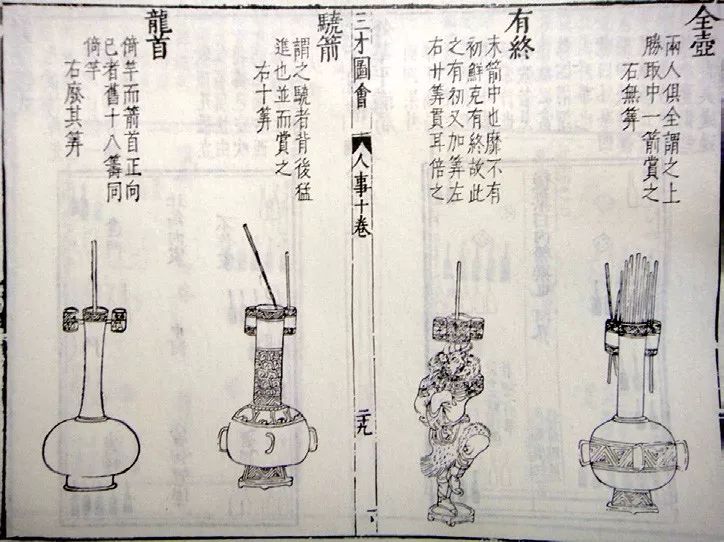 全壺
兩人俱全謂之上
勝取中一箭賞之
右無筭
有終
末箭中也靡不有
初鮮克有終故此
之有初又加筭左
右廾筭貫耳倍之
三才圖會
人事十卷
二十九
驍箭
謂之驍者背後猛
進也並而賞之
右十筭
龍首
倚竿而箭首正向
已者舊十八籌同
倚竿
右廢其筭